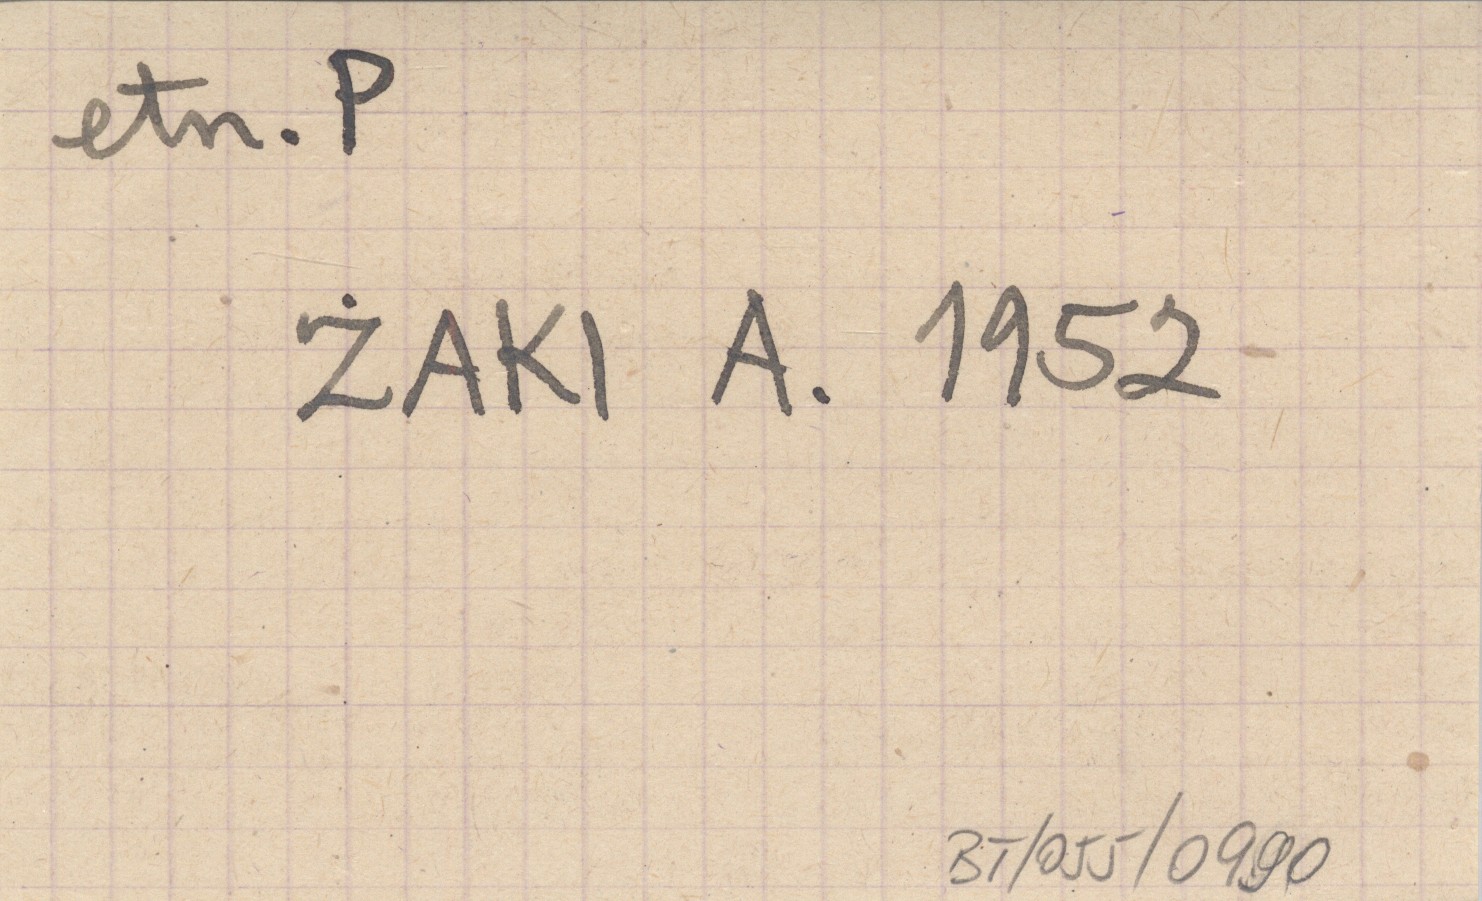 etn. P
ŻAKI A. 1952
BT/055/0990